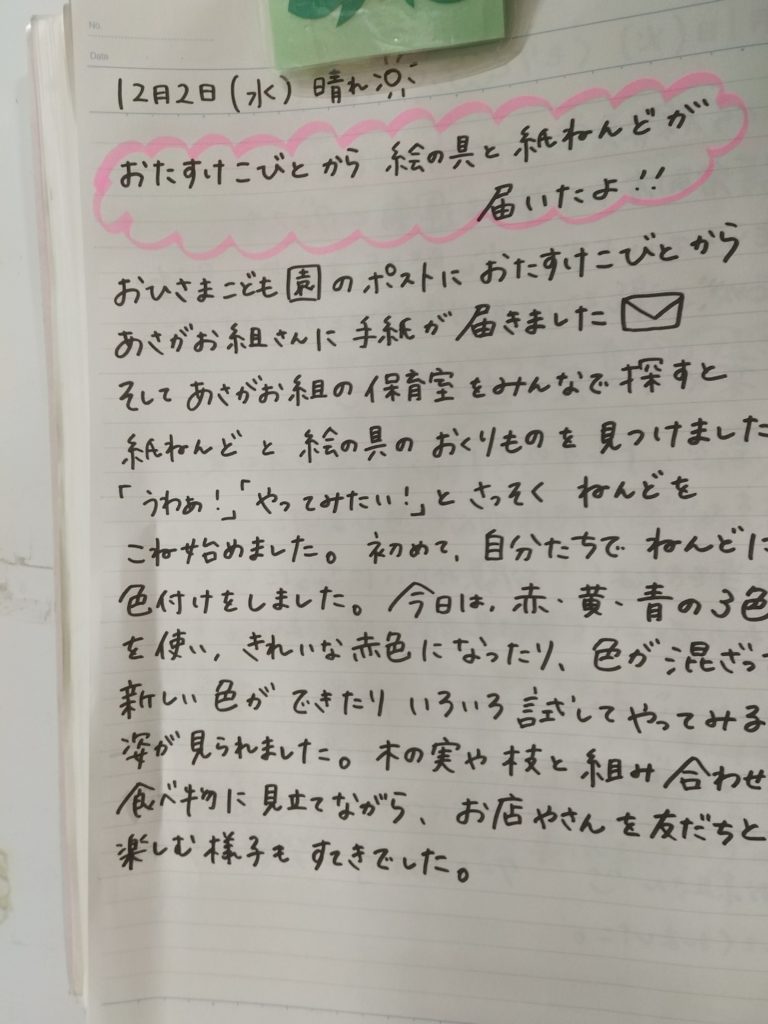 No.
Date
12月2日(水) 晴れ
おたすけこびとから 絵の具と 紙ねんどが
届いたよ!!
おひさまこども園のポストに おたすけこびとから
あさがお組さんに 手紙が 届きました
そして あさがお組の 保育室をみんなで探すと
紙ねんどと 絵の具の おくりものを 見つけました
「うわぁ!」「やってみたい!」と さっそく ねんどを
こね始めました。初めて、自分たちで ねんどに
色付けをしました。今日は、赤・黄・青の3色
を使い、きれいな赤色になったり、色が混ざっ
新しい色ができたり いろいろ試してやってみる
姿が見られました。木の実や枝と組み合わせ
食べ物に見立てながら、お店やさんを友だちと
楽しむ様子も すてきでした。